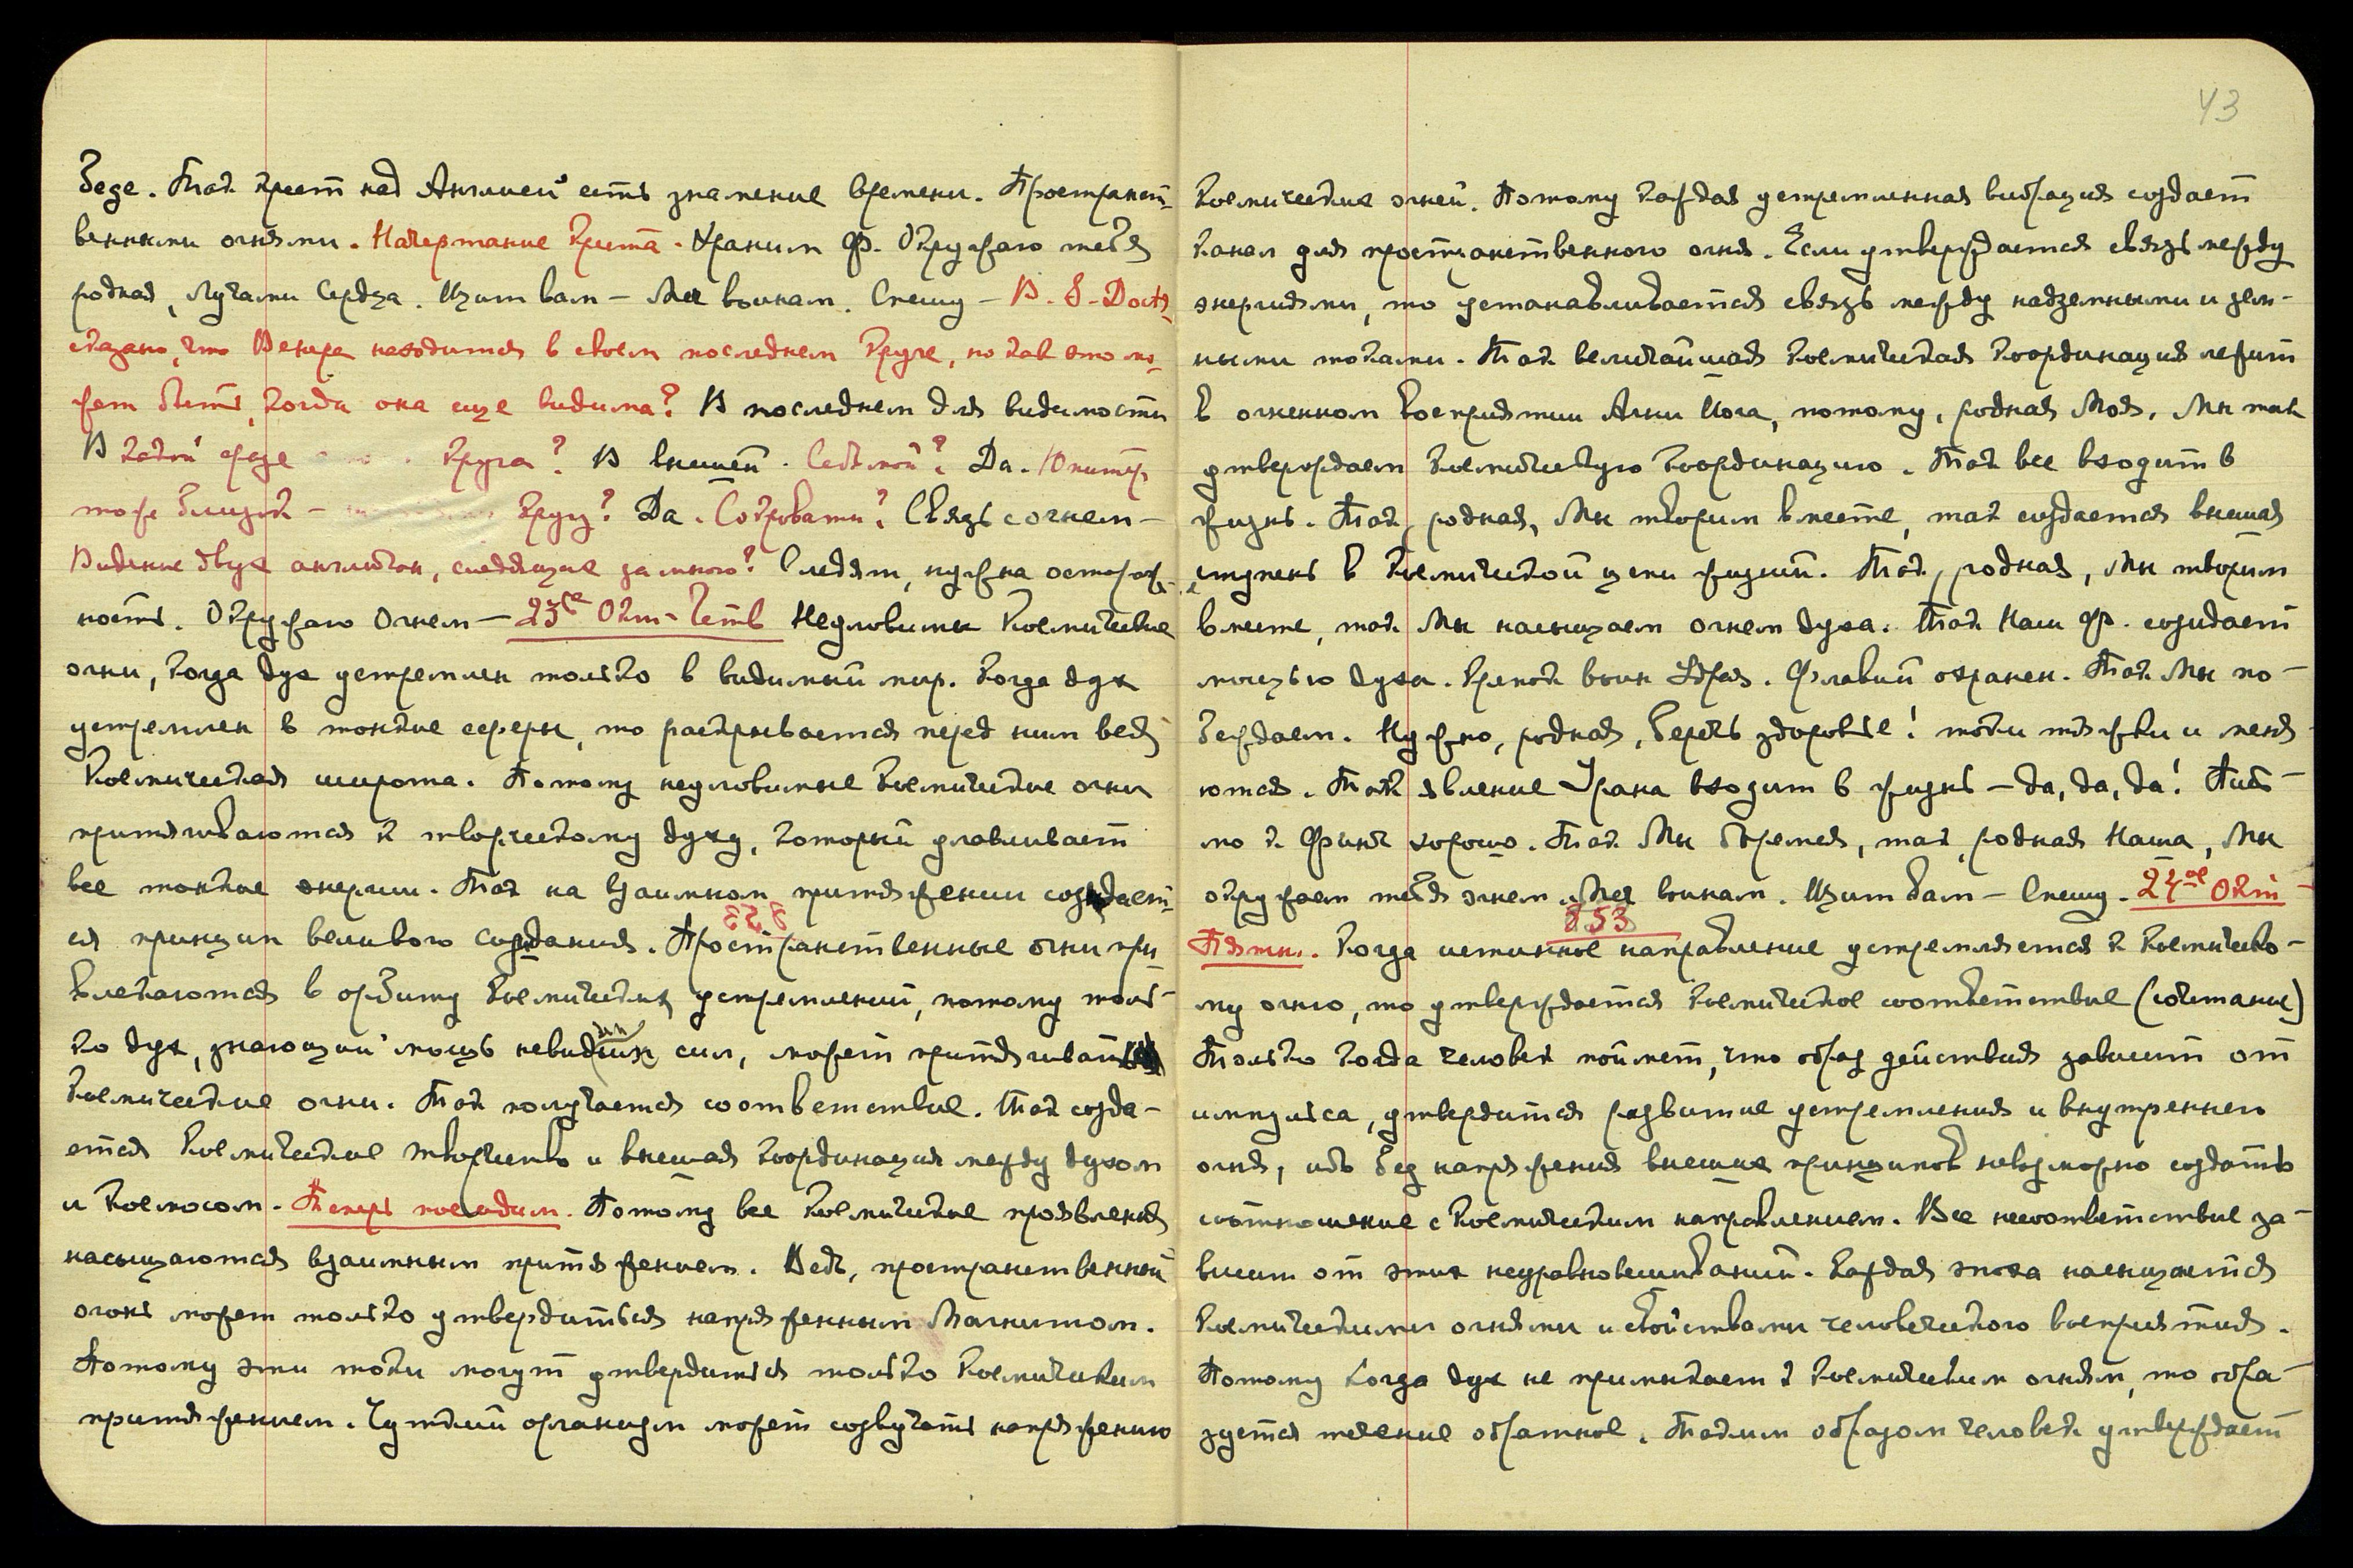 беде. Так крест над Англией есть знамение времени. Пространст-
венными огнями. Начертание Креста. Храним Ф. Окружаю тебя
родная, Лучами Сердца. Щит вам – Меч воинам. Спешу – В S. Doct.
сказано, что Венера находится в своем последнем Круге, но как это мо-
жет быть, когда она еще видима? В последнем для видимости
В какой фазе Круга? В высшей. Седьмой? Да. Юпитер
тоже близок – Кругу? Да. Сокровати? Связь с огнем –
Видение двух англичан, следящие за мною? Следят, нужна осторож-
ность. Окружаю Огнем – 23го Окт- Четв Неуловимы Космические
огни, когда дух устремлен только в видимый мир. Когда дух
устремлен в тонкие сферы, то раскрывается перед ним вся
Космическая широта. Потому неуловимые Космические огни
притягиваются к творческому духу, который улавливает
все тонкие энергии. Так на взаимном притяжении создает-
853
ся принцип великого создания. Пространственные огни при-
влекаются в орбиту Космических устремлений, потому толь-
ко дух, знающий мощь невидимых сил, может притягивать
Космические огни. Так получается соответствие. Так созда-
ется Космическое творчество и высшая координация между духом
и Космосом. Теперь последим. Потому все Космические проявления
насыщаются взаимным притяжением. Ведь, пространственный
огонь может только утвердиться напряженным Магнитом.
Потому эти токи могут утвердиться только Космическим
притяжением. Чуткий организм может созвучать напряжению
43
Космических огней. Потому каждая устремленная вибрация создает
канал для пространственного огня. Если утверждается связь между
энергиями, то устанавливается связь между надземными и зем-
ными токами. Так величайшая Космическая координация лежит
в огненном восприятии Агни Йога, потому, родная Моя, Мы так
утверждаем Космическую координацию. Так все входит в
жизнь. Так, родная, Мы творим вместе, так создается высшая
ступень в Космической цепи жизней. Так, родная, Мы творим
вместе, так Мы насыщаем огнем духа. Так Наш Ф. созидает
мощью духа. Крепок воин Удрая. Флавий охранен. Так Мы по-
беждаем. Нужно, родная, беречь здоровье! токи тяжки и меня-
ются. Так явление Урана входит в жизнь – да, да, да! Пись-
мо к Финч хорошо. Так Мы боремся, так, родная Наша, Мы
окружаем тебя огнем. Меч воинам. Щит вам – Спешу. 24ое Окт-
853
Пятн. Когда истинное направление устремляется к Космическо-
му огню, то утверждается Космическое соответствие (сочетание)
Только когда человек поймет, что образ действия зависит от
импульса, утвердится развитие устремления и внутреннего
огня, ибо без напряжения высших принципов невозможно создать
соотношение с Космическим направлением. Все несоответствие за-
висит от этих неуравновешиваний. Каждая эпоха насыщается
Космическими огнями и свойствами человеческого восприятия.
Потому когда дух не примыкает к Космическим огням, то обра-
зуется течение обратное. Таким образом человек утверждает